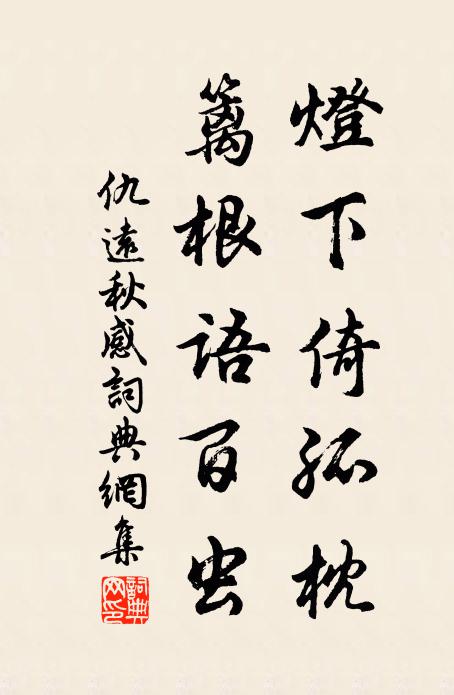 燈下倚孤枕
籬根語百虫
仇遠秋感詞典網集
詞典网印